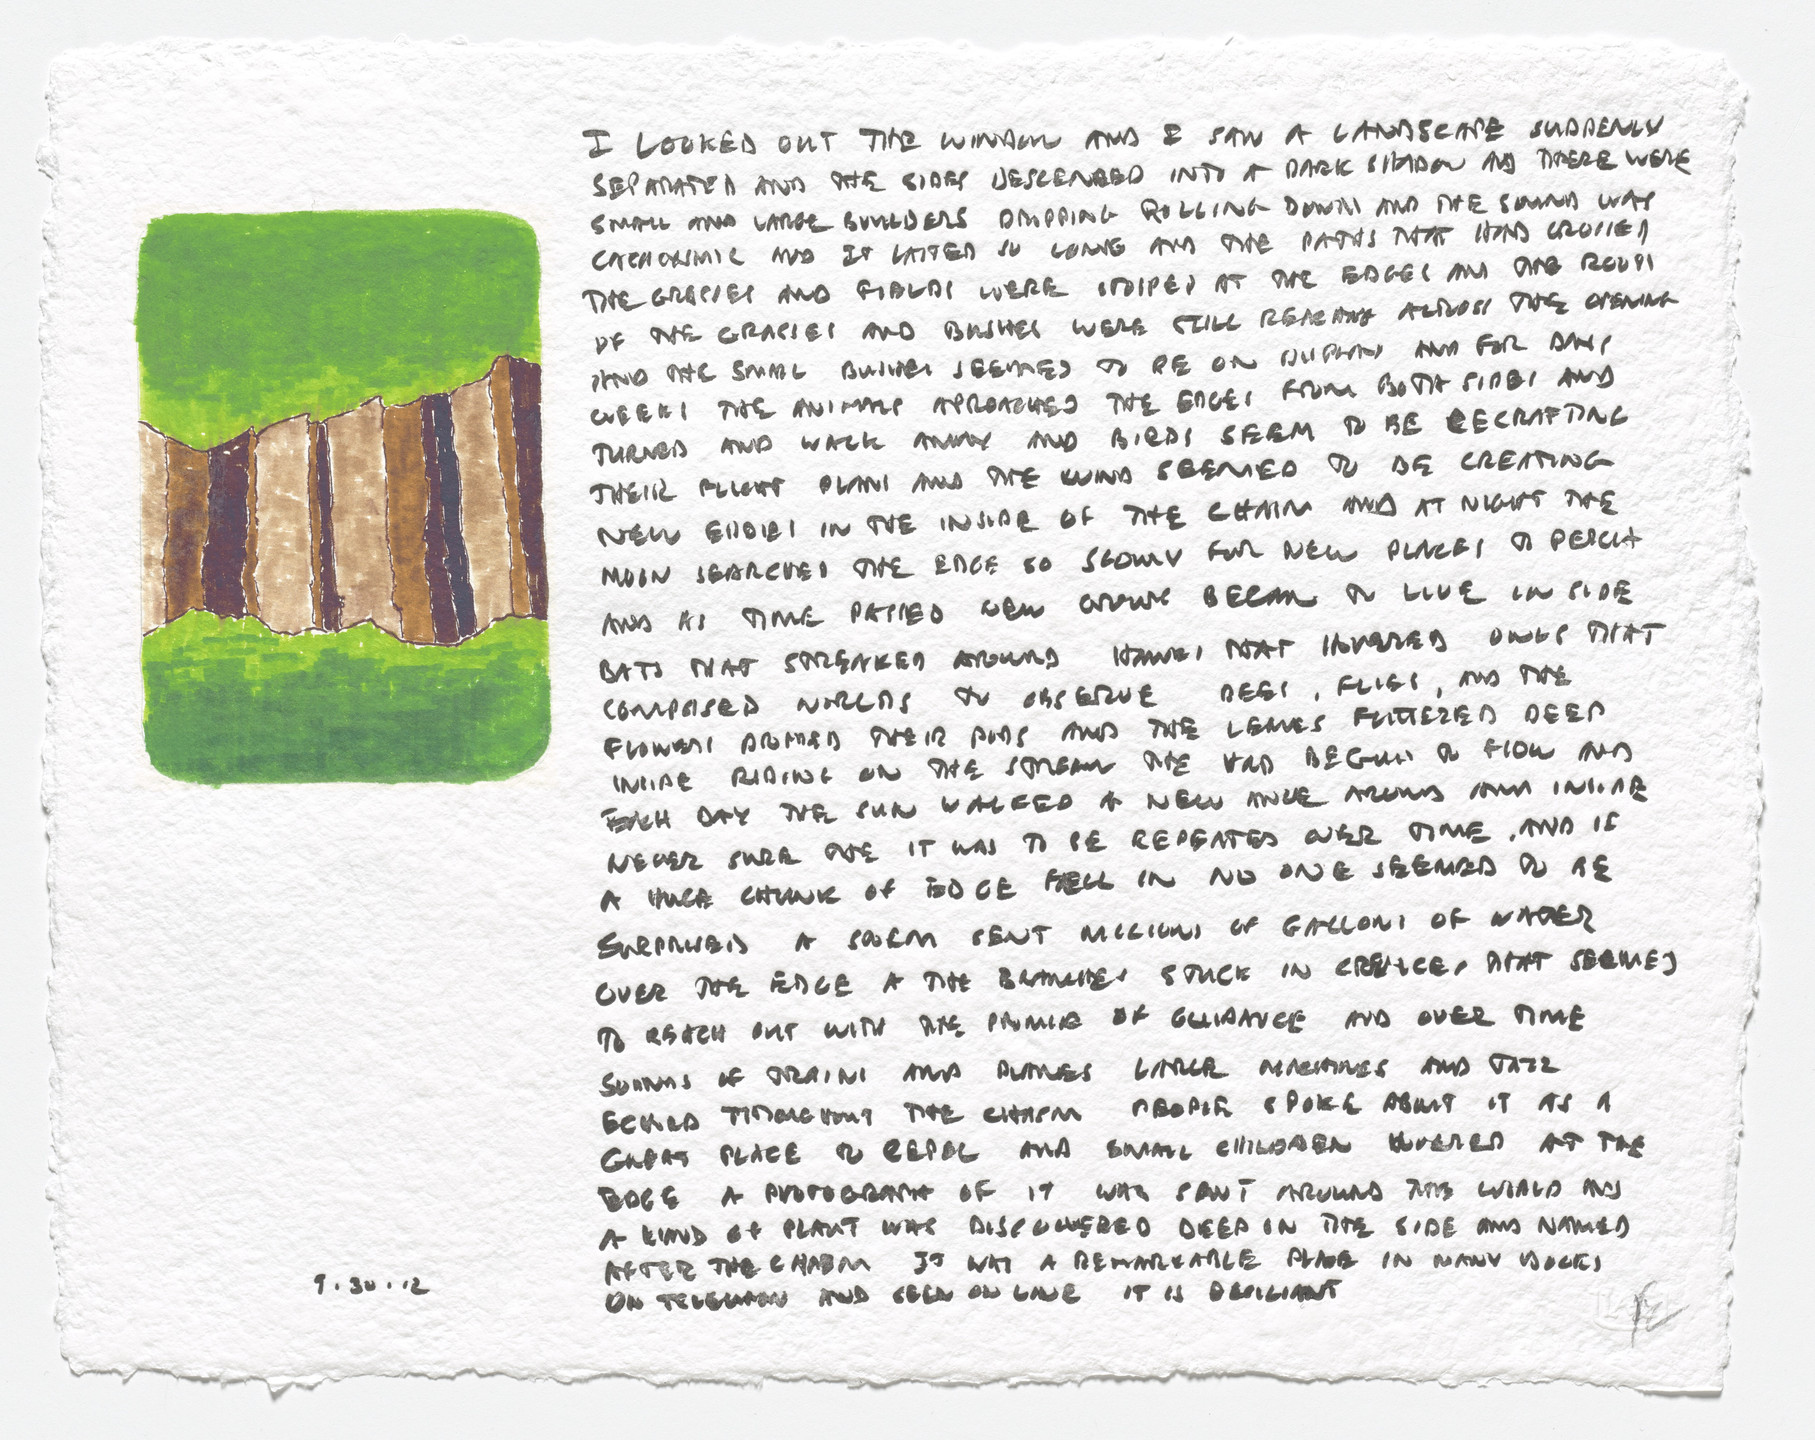 I LOOKED OUT THE WINDOW AND I SAW A LANDSCAPE SUDDENLY
SEPARATED AND THE SIDES DESCENDED INTO A DARK SHADOW AND THERE WERE
SMALL AND LARGE BUILDERS DRIPPING ROLLING DOWN AND THE SOUND WAS
AND IT LASTED SO LONG AND THE PATHS THAT HAD CROSSED
THE GRASSES AND FIELDS WERE AT THE EDGES AND THE ROOTS
OF THE GRASSES AND BUSHES WERE STILL REACHING ACROSS THE OPENING
AND THE SMALL BUSHES SEEMED TO BE ON AND FOR DAYS
WEEKS THE ANIMALS APROACHED THE EDGES FROM BOTH SIDES AND
TURNED AND WALK AWAY AND BIRDS SEEM TO BE RECRAFTING
THEIR FLIGHT PLANS AND THE WIND SEEMED TO BE CREATING
NEW EDDIES IN THE INSIDE OF THE CHASM AND AT NIGHT THE
MOON SEARCHED THE EDGE SO SLOWLY FOR NEW PLACES TO PERCH
AND AS TIME PASSED NEW BEGAN TO LIVE IN SIDE
BATS THAT STREAKED AROUND HAWKS THAT HOVERED OWLS THAT
COMPOSED WORLDS TO OBSERVE BEES, FLIES, AND THE
FLOWERS DROPPED THEIR PODS AND THE LEAVES FLITTERED DEEP
INSIDE RIDING ON THE STREAM THE HAD BEGUN TO FLOW AND
EACH DAY THE SUN WALKED A NEW ANGLE AROUND AND INSIDE
NEVER SURE THE IT WAS TO BE REPEATED OVER TIME, AND IF
A HUGE CHUNK OF EDGE FELL IN NO ONE SEEMED TO BE
SURPRISED A STORM SENT MILLIONS OF GALLONS OF WATER
OVER THE EDGE A THE BRANCHES STUCK IN CREVICES THAT SEEMED
TO REACH OUT WITH THE PROMISE OF GUIDANCE AND OVER TIME
SOUNDS OF TRAINS AND PLANES LARGE MACHINES AND JAZZ
ECHOED THROUGHOUT THE CHASM PEOPLE SPOKE ABOUT IT AS A
GREAT PLACE TO REPEL AND SMALL CHILDREN HOVERED AT THE
EDGE A PHOTOGRAPH OF IT WAS SENT AROUND THE WORLD AND
A KIND OF PLANT WAS DISCOVERED DEEP IN THE SIDE AND NAMED
AFTER THE CHASM IT WAS A REMARKABLE PLACE IN MANY BOOKS
ON TELEVISION AND SEEN ON LINE IT IS BRILLIANT
9.30.12